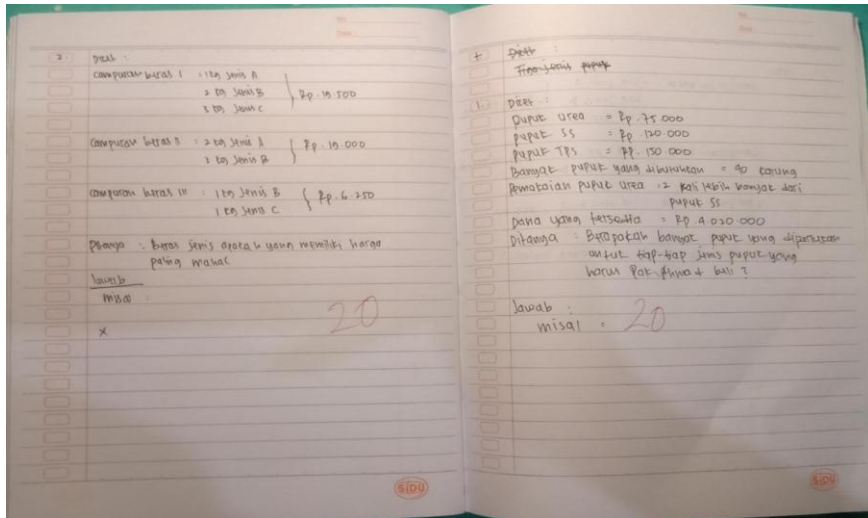 No.
Date :
2. Diket :
campuran beras I : 1 kg Jenis A
2 kg Jenis B
3 kg Jenis C
Rp. 19.500
campuran beras II : 2 kg Jenis A
3 kg Jenis B
Rp. 19.000
campuran beras III : 1 kg Jenis B
1 kg Jenis C
Rp. 6.250
Ditanya : Beras jenis apakah yang memiliki harga
paling mahal
Jawab
misal :
20
x
SiDU
No.
Date :
Diket :
jenis pupuk
1. Diket :
pupuk urea = Rp. 75.000
pupuk SS = Rp. 120.000
pupuk TPS = Rp. 150.000
Banyak pupuk yang dibutuhkan = 40 karung
Pemakaian pupuk urea = 2 kali lebih banyak dari
pupuk SS
Dana yang tersedia = Rp 4.020.000
Ditanya : Berapakah banyak pupuk yang diperlukan
untuk tiap-tiap jenis pupuk yang
harus Pak Ahmad beli ?
Jawab :
misal :
20
SiDU